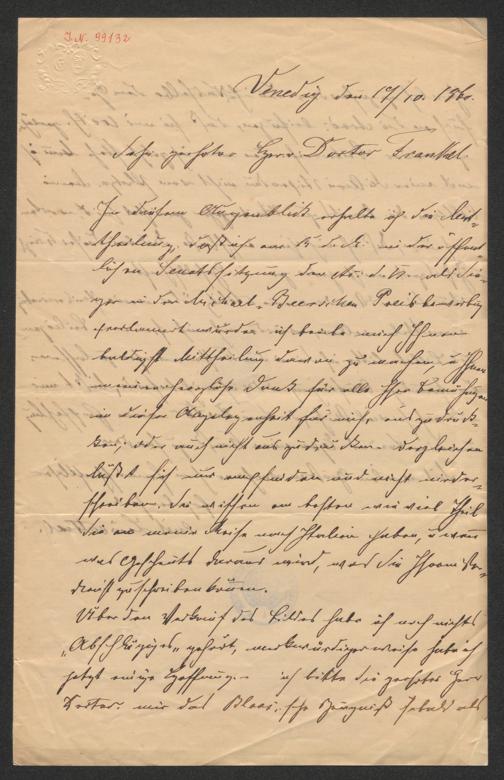 I. N. 99132
Venedig den 17/10. 186.
Sehr geehrter Herr Doctor Frankel.
In diesem Augenblick erhalte ich die Mit-
theilung, daß ich am in der öffent-
lichen Senatssitzung der als Sie-
ger in der Michael-Beerschen Preisbewerbung
wurde, ich beeile mich Ihnen
Mittheilung davon zu machen, u Ihnen
meinen herzlichsten Dank für alle Ihre Bemühungen
in dieser Angelegenheit für mich auszudrück-
ken, oder auch nicht auszudrücken, dergleichen
läßt sich nur empfinden und nicht nieder-
schreiben, Sie wissen am besten wie viel Theil
Sie an meiner Reise nach Italien haben, u wenn
was Gescheuts daraus wird, was Sie Ihrem Ver-
dienst zuschreiben können.
Über den Verkauf des Bildes habe ich noch nichts
„Abschlägiges“ gehört, merkwürdigerweise habe ich
jetzt einige Hoffnung - ich bitte Sie geehrter Herr
Doctor: mir das Zeugniß sobald als